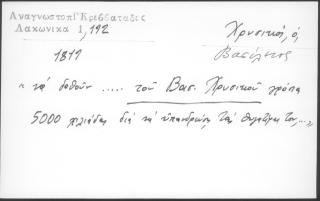 Αναγνωστοπ/Κρεββατάδες
Λακωνικα 1,192
Χρυσικός, ὁ
Βασίλειος
1819
« νά δοθοῦν ..... τοῦ Βασ. Χρυσικοῦ γρόσια
5000 χιλιάδες διά νά ὑπανδρεύση τάς θυγατέρας του,..»